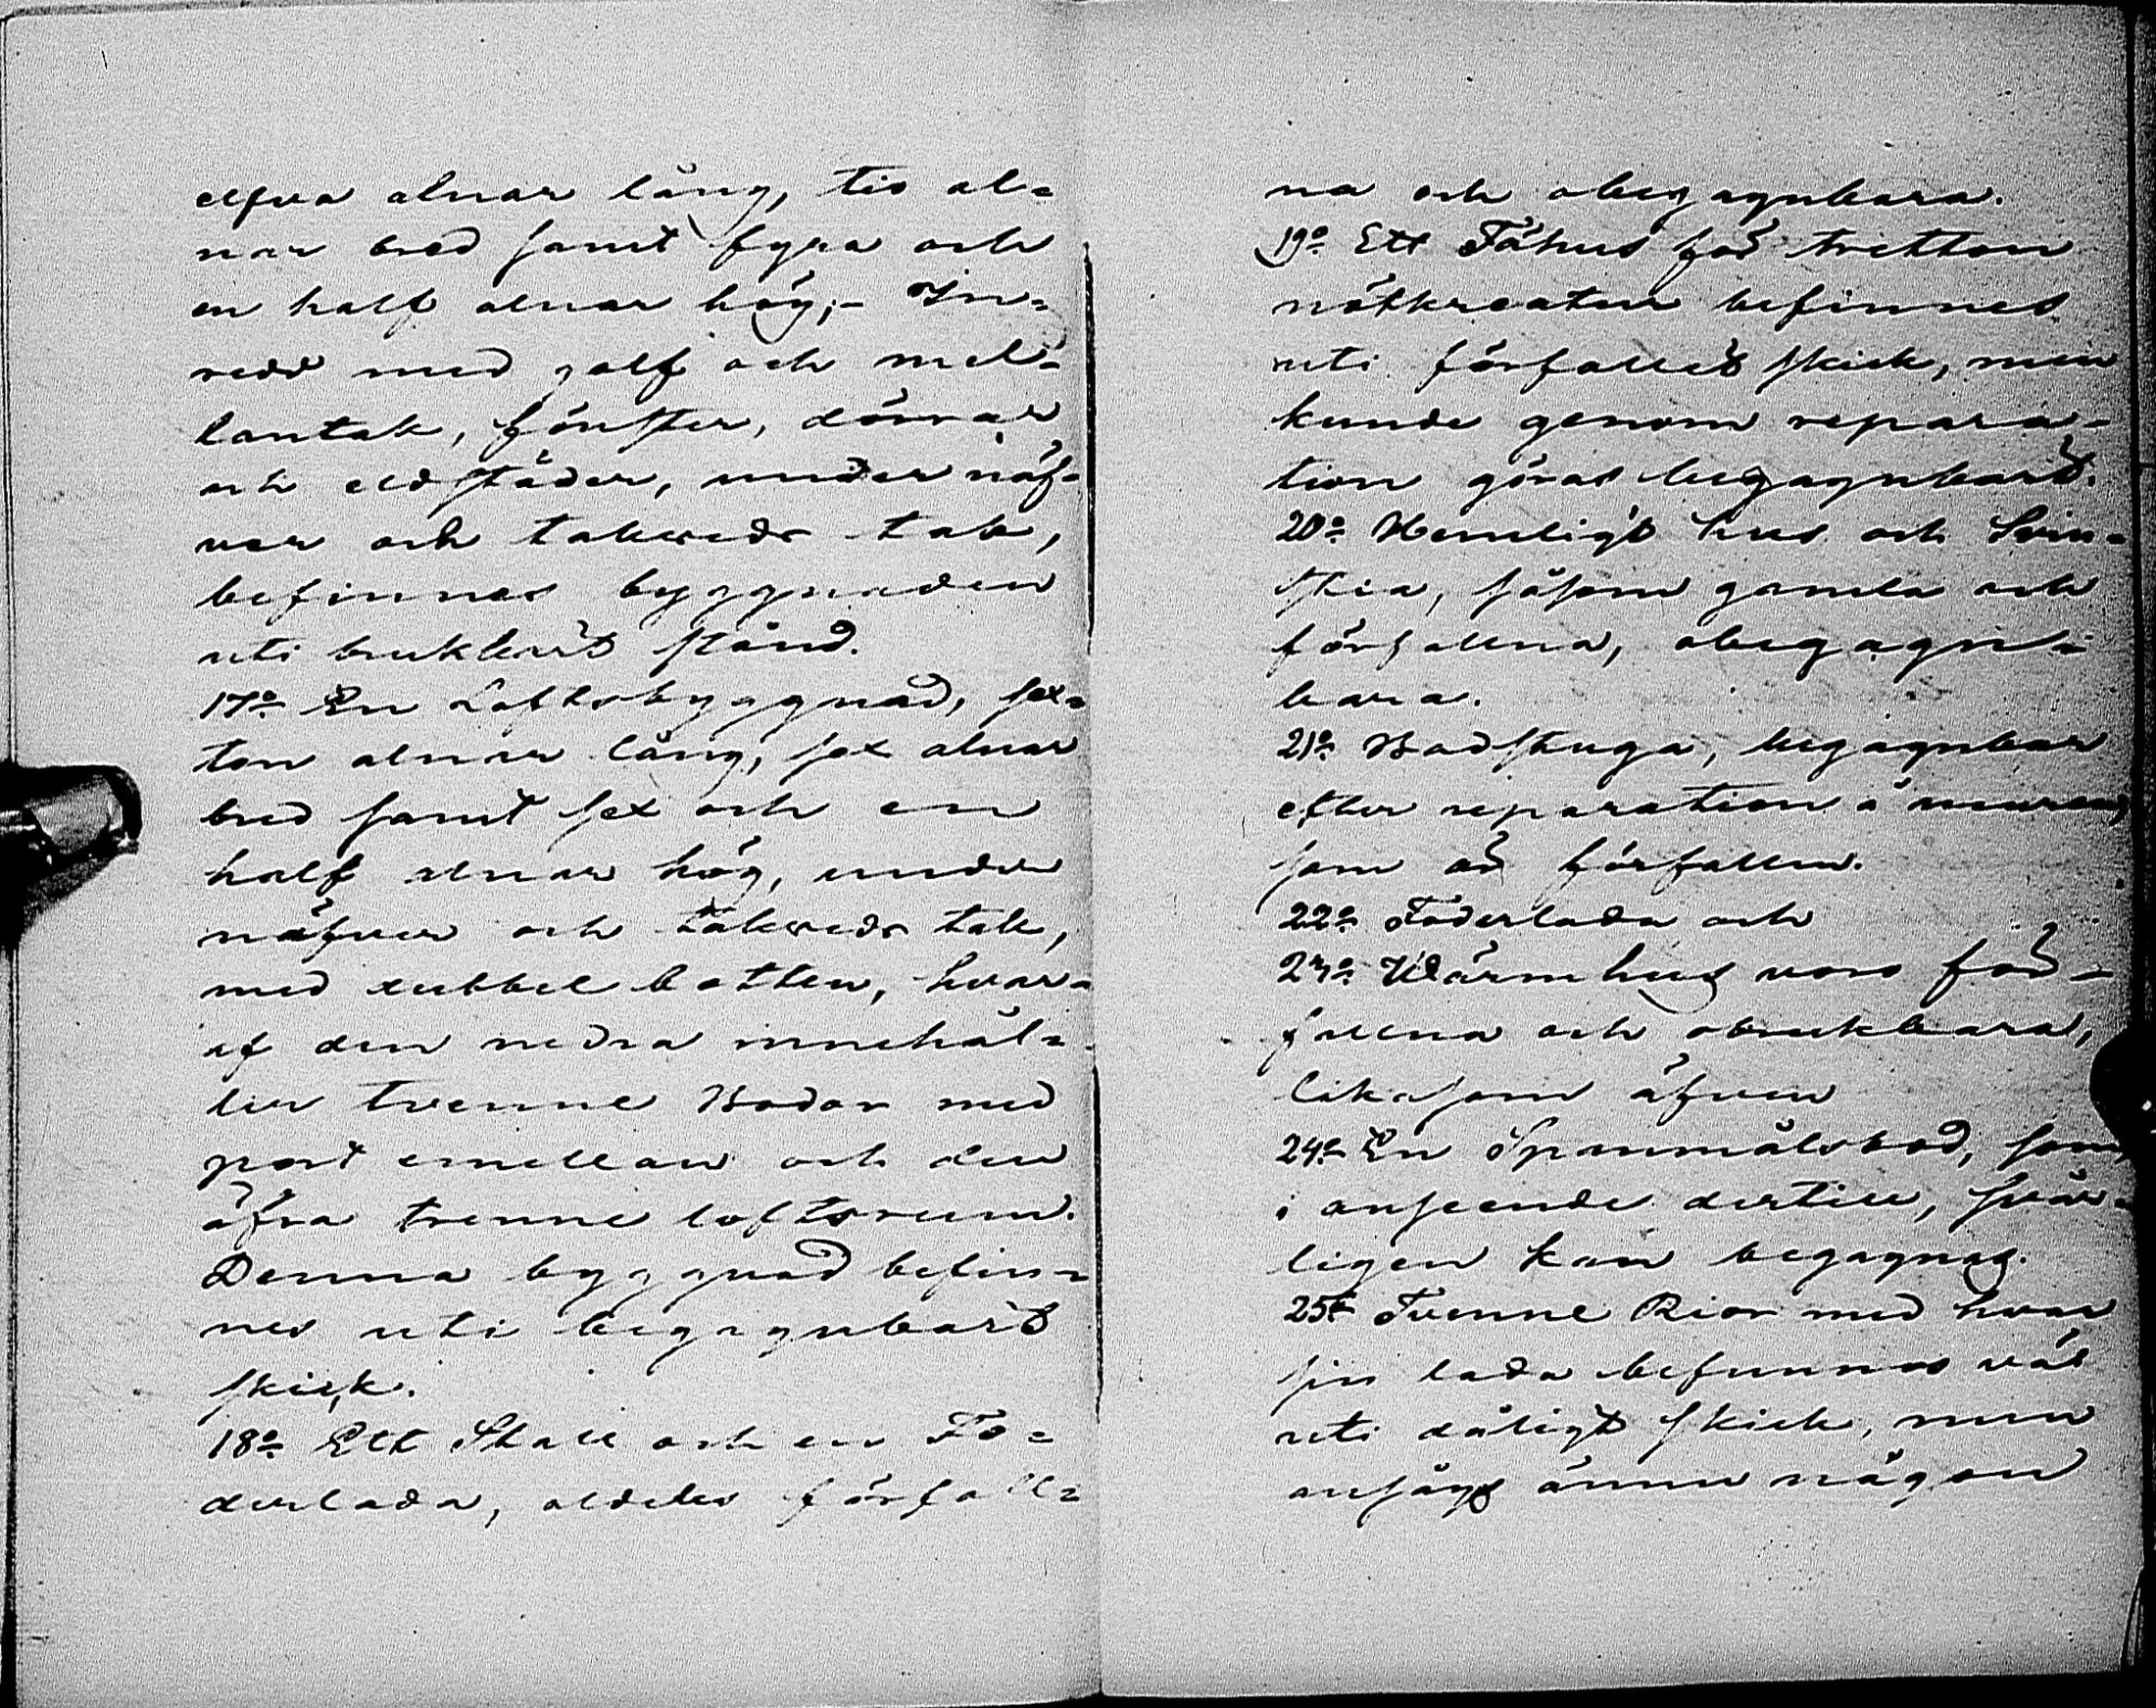 elfva alnar lång, tio al=
nar bred samt fyra och
en half alnar hög;- In=
redd med golf och mel=
lantak, fönster, dörrar
och eldstäder, under näf=
ver och takveds tak,
befinnes byggnaden
uti brukbart stånd.
17o En Loftsbyggnad, sex=
ton alnar lång, sex alnar
bred samt sex och en
half alnar hög, under
näfver och takveds tak,
med dubbel botten, hvar=
af den nedra innehål=
ler trenne Bodar med
port emellan och den
öfra trenne loftsrum.
Denna byggnad befin=
nes uti begagnbart
skick.
18o Ett Stall och en Fo=
derlada, aldeles förfall=
na och obegagnbara.
19o Ett Fähus för tretton
nötkreatur befinnes
uti förfallet skick, men
kunde genom repara=
tion göras begagnbart.
20o Hemligt hus och Svin=
stia, såsom gamla och
förfallna, obegagn=
bara.
21o Badstuga, begagnbar
efter reparation å muren,
som är förfallen.
22o Foderlada och
23o Wärmhus voro för=
fallna och obrukbara,
likasom äfven
24o En Spannmålsbod, som
i anseende dertill, svår=
ligen kan begagnas.
25o Tvenne Rior med hvar
sin lada befunnos väl
uti dåligt skick, men
ansågs ännu någon